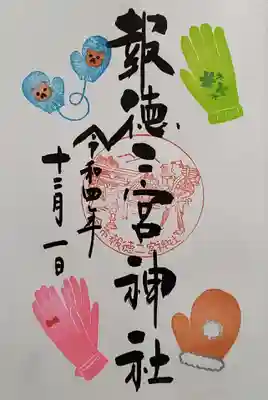 報徳二宮神社
令和四年
十二月一日